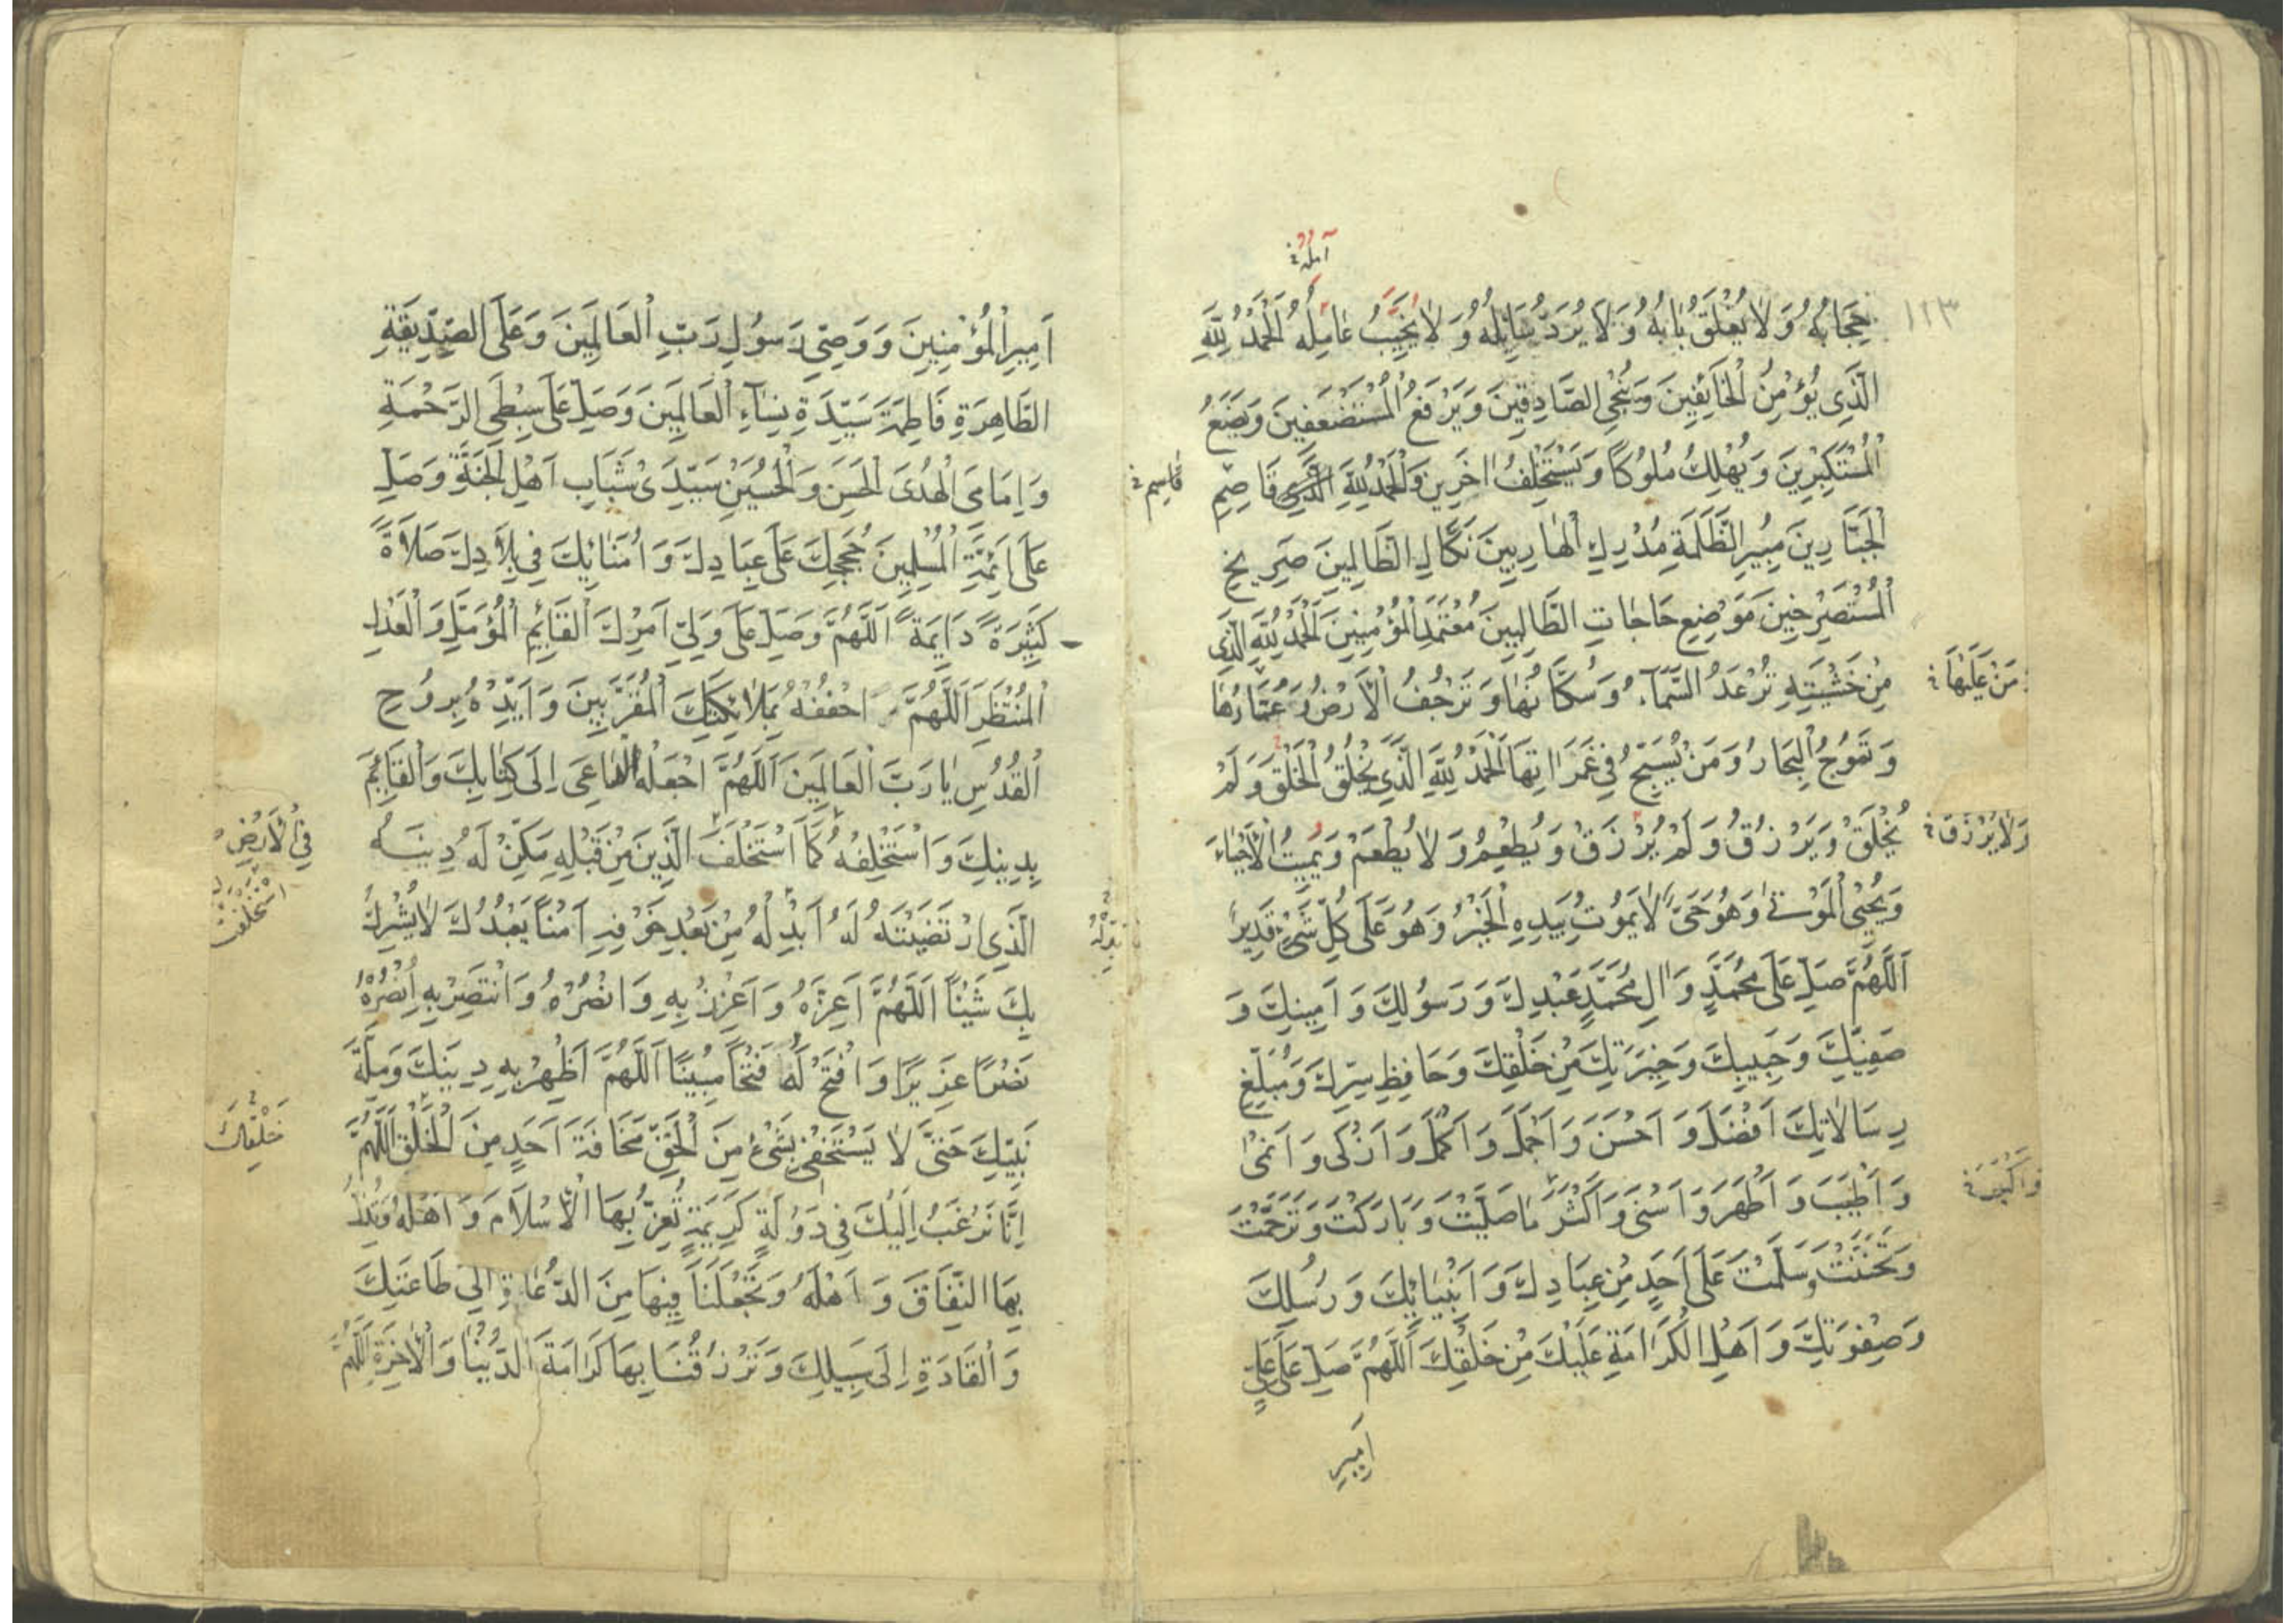 آمله خ
١٢٣
حِجَابُهُ وَلَا يُغْلَقُ بَابُهُ وَلَا يُرَدُّ سَائِلُهُ وَلَا يُخَيَّبُ عَامِلُهُ اَلْحَمْدُ لِلّٰهِ
الَّذِي يُؤْمِنُ الْخَائِفِينَ وَيُنَجِّي الصَّادِقِينَ وَيَرْفَعُ الْمُسْتَضْعَفِينَ وَيَضَعُ
الْمُسْتَكْبِرِينَ وَيُهْلِكُ مُلُوكًا وَيَسْتَخْلِفُ اٰخَرِينَ وَالْحَمْدُ لِلّٰهِ الَّذِي قَاصِمِ
قاسم خ
الْجَبَّارِينَ مُبِيرِ الظَّلَمَةِ مُدْرِكِ الْهَارِبِينَ نَكَالِ الظَّالِمِينَ صَرِيخِ
الْمُسْتَصْرِخِينَ مَوْضِعِ حَاجَاتِ الطَّالِبِينَ مُعْتَمَدِ الْمُؤْمِنِينَ اَلْحَمْدُ لِلّٰهِ الَّذِي
مِنْ خَشْيَتِهِ تُرْعَدُ السَّمَاءُ وَسُكَّانُهَا وَتَرْجُفُ الْاَرْضُ وَعُمَّارُهَا
مَنْ عَلَيْهَا خ
وَتَمُوجُ الْبِحَارُ وَمَنْ يُسَبِّحُ فِي غَمَرَاتِهَا اَلْحَمْدُ لِلّٰهِ الَّذِي يَخْلُقُ الْخَلْقَ وَلَمْ
يُخْلَقْ وَيَرْزُقُ وَلَمْ يُرْزَقْ وَيُطْعِمُ وَلَا يُطْعَمُ وَيُمِيتُ الْاَحْيَاءَ
وَلَا يُرْزَقُ خ
وَيُحْيِي الْمَوْتٰى وَهُوَ حَيٌّ لَا يَمُوتُ بِيَدِهِ الْخَيْرُ وَهُوَ عَلَى كُلِّ شَيْءٍ قَدِيرٌ
اَللّٰهُمَّ صَلِّ عَلَى مُحَمَّدٍ وَاٰلِ مُحَمَّدٍ عَبْدِكَ وَرَسُولِكَ وَاَمِينِكَ وَ
صَفِيِّكَ وَحَبِيبِكَ وَخِيَرَتِكَ مِنْ خَلْقِكَ وَحَافِظِ سِرِّكَ وَمُبَلِّغِ
رِسَالَاتِكَ اَفْضَلَ وَاَحْسَنَ وَاَجْمَلَ وَاَكْمَلَ وَاَزْكَى وَاَنْمٰى
وَاَطْيَبَ وَاَطْهَرَ وَاَسْنَى وَاَكْثَرَ مَا صَلَّيْتَ وَبَارَكْتَ وَتَرَحَّمْتَ
وَاَكْبَرَ خ
وَتَحَنَّنْتَ وَسَلَّمْتَ عَلَى اَحَدٍ مِنْ عِبَادِكَ وَاَنْبِيَائِكَ وَرُسُلِكَ
وَصِفْوَتِكَ وَاَهْلِ الْكَرَامَةِ عَلَيْكَ مِنْ خَلْقِكَ اَللّٰهُمَّ صَلِّ عَلَى عَلِيٍّ
اَمِيرِ
اَمِيرِ الْمُؤْمِنِينَ وَوَصِيِّ رَسُولِ رَبِّ الْعَالَمِينَ وَعَلَى الصِّدِّيقَةِ
الطَّاهِرَةِ فَاطِمَةَ سَيِّدَةِ نِسَاءِ الْعَالَمِينَ وَصَلِّ عَلَى سِبْطَيِ الرَّحْمَةِ
وَاِمَامَيِ الْهُدَى الْحَسَنِ وَالْحُسَيْنِ سَيِّدَيْ شَبَابِ اَهْلِ الْجَنَّةِ وَصَلِّ
عَلَى اَئِمَّةِ الْمُسْلِمِينَ حُجَجِكَ عَلَى عِبَادِكَ وَاُمَنَائِكَ فِي بِلَادِكَ صَلَاةً
كَثِيرَةً دَايِمَةً اَللّٰهُمَّ وَصَلِّ عَلَى وَلِيِّ اَمْرِكَ الْقَائِمِ الْمُؤَمَّلِ وَالْعَدْلِ
الْمُنْتَظَرِ اَللّٰهُمَّ احْفُفْهُ بِمَلَائِكَتِكَ الْمُقَرَّبِينَ وَاَيِّدْهُ بِرُوحِ
الْقُدُسِ يَا رَبَّ الْعَالَمِينَ اَللّٰهُمَّ اجْعَلْهُ الدَّاعِيَ اِلَى كِتَابِكَ وَالْقَائِمَ
بِدِينِكَ وَاسْتَخْلِفْهُ كَمَا اسْتَخْلَفْتَ الَّذِينَ مِنْ قَبْلِهِ مَكِّنْ لَهُ دِينَهُ
فِي الْاَرْضِ
اسْتَخْلَفْتَ
الَّذِي ارْتَضَيْتَهُ لَهُ اَبْدِلْهُ مِنْ بَعْدِ خَوْفِهِ اَمْنًا يَعْبُدُكَ لَا يُشْرِكُ
بِكَ شَيْئًا اَللّٰهُمَّ اَعِزَّهُ وَاَعْزِزْ بِهِ وَانْصُرْهُ وَانْتَصِرْ بِهِ اُنْصُرْهُ
نَصْرًا عَزِيزًا وَافْتَحْ لَهُ فَتْحًا مُبِينًا اَللّٰهُمَّ اَظْهِرْ بِهِ دِينَكَ وَمِلَّةَ
نَبِيِّكَ حَتّٰى لَا يَسْتَخْفِيَ بِشَيْءٍ مِنَ الْحَقِّ مَخَافَةَ اَحَدٍ مِنَ الْخَلْقِ اَللّٰهُمَّ
خَلْقِكَ
اِنَّا نَرْغَبُ اِلَيْكَ فِي دَوْلَةٍ كَرِيمَةٍ تُعِزُّ بِهَا الْاِسْلَامَ وَاَهْلَهُ وَتُذِلُّ
بِهَا النِّفَاقَ وَاَهْلَهُ وَتَجْعَلُنَا فِيهَا مِنَ الدُّعَاةِ اِلَى طَاعَتِكَ
وَالْقَادَةِ اِلَى سَبِيلِكَ وَتَرْزُقُنَا بِهَا كَرَامَةَ الدُّنْيَا وَالْاٰخِرَةِ اَللّٰهُمَّ